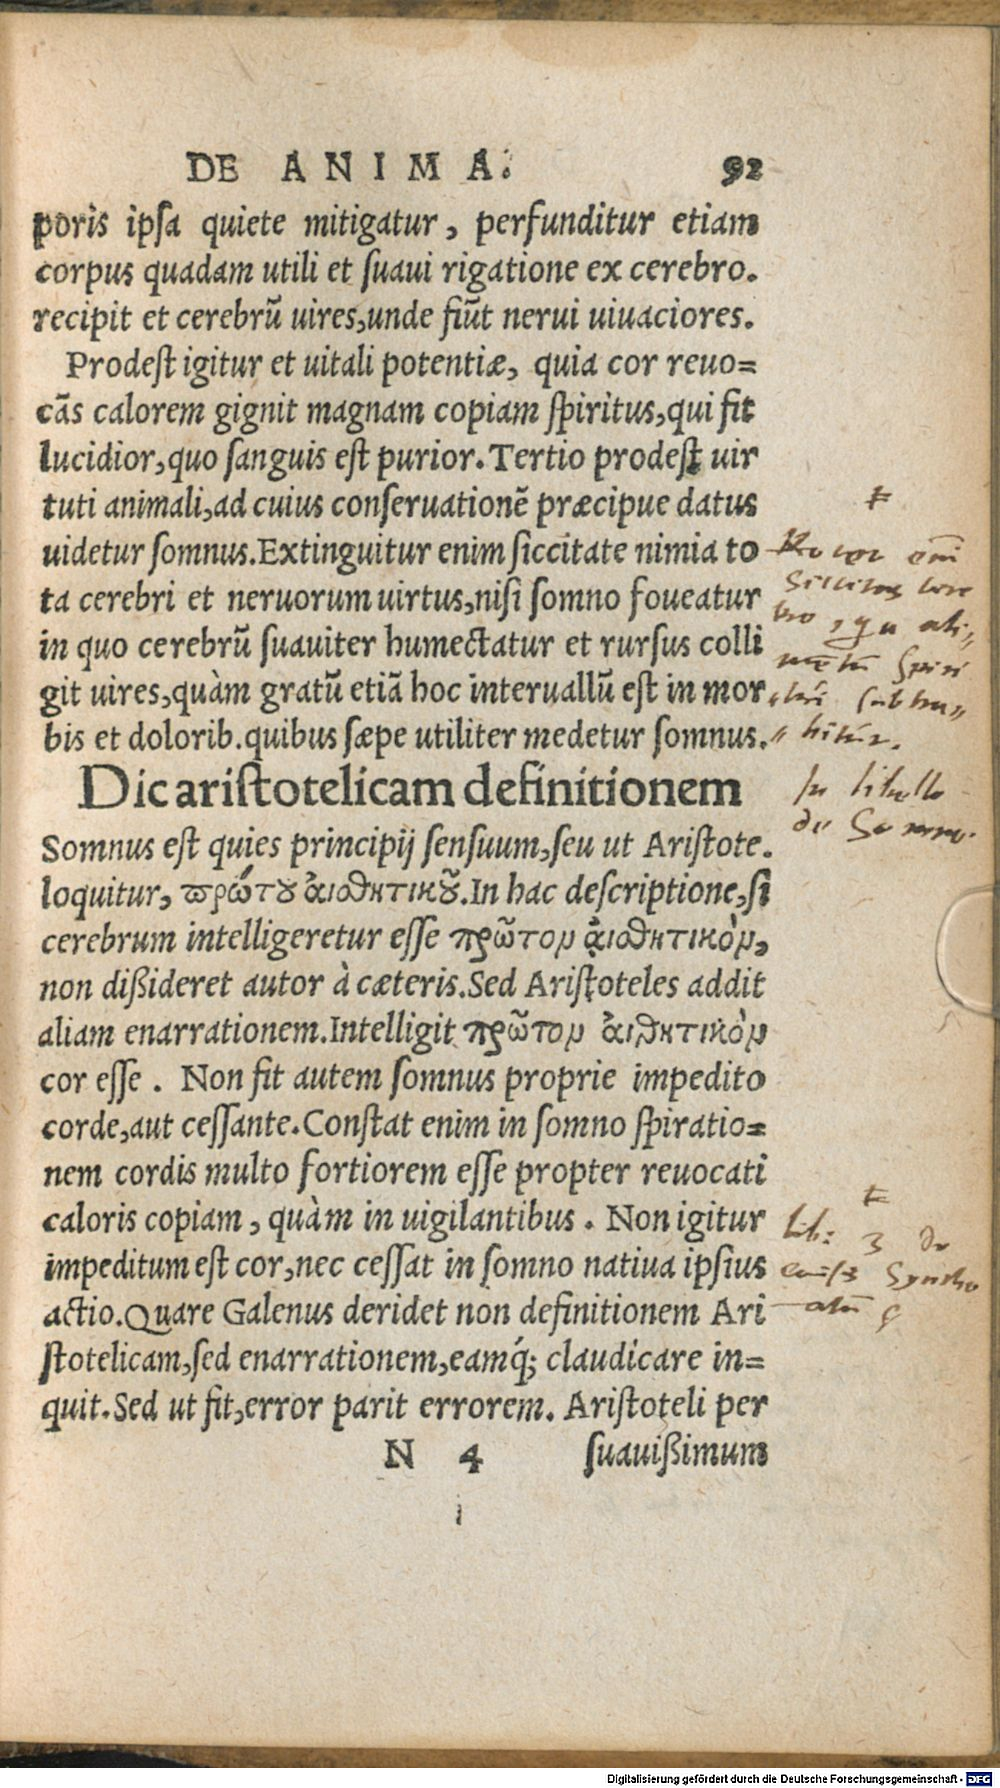 DE ANIMA. 92
poris ipsa quiete mitigatur, perfunditur etiam
corpus quadam utili et suaui rigatione ex cerebro.
recipit et cerebrũ uires, unde fiũt nerui uiuaciores.
Prodest igitur et uitali potentiæ, quia cor reuo=
cãs calorem gignit magnam copiam spiritus, qui fit
lucidior, quo sanguis est purior. Tertio prodest uir
tuti animali, ad cuius conseruationẽ præcipue datus
uidetur somnus. Extinguitur enim siccitate nimia to
ta cerebri et neruorum uirtus, nisi somno foueatur
in quo cerebrũ suauiter humectatur et rursus colli
git uires, quàm gratũ etiã hoc interuallũ est in mor
bis et dolorib. quibus sæpe utiliter medetur somnus.
Dic aristotelicam definitionem
Somnus est quies principij sensuum, seu ut Aristote.
loquitur, πρώτου ἀισθητικοῦ. In hac descriptione, si
cerebrum intelligeretur esse πρῶτον ἀισθητικὸν,
non dißideret autor à cæteris. Sed Aristoteles addit
aliam enarrationem. Intelligit πρῶτον ἀισθητικὸν
cor esse. Non fit autem somnus proprie impedito
corde, aut cessante. Constat enim in somno spiratio=
nem cordis multo fortiorem esse propter reuocati
caloris copiam, quàm in uigilantibus. Non igitur
impeditum est cor, nec cessat in somno natiua ipsius
actio. Quare Galenus deridet non definitionem Ari
stotelicam, sed enarrationem, eamq́; claudicare in=
quit. Sed ut fit, error parit errorem. Aristoteli per
N 4 suauißimum
In libello
de Somno.
Lib: 3 de
Digitalisierung gefördert durch die Deutsche Forschungsgemeinschaft - DFG